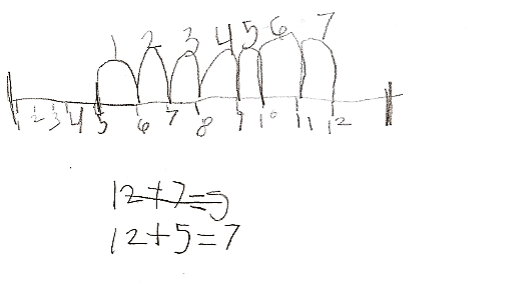 1 2 3 4 5 6 7
1 2 3 4 5 6 7 8 9 10 11 12
12+7=5
12+5=7